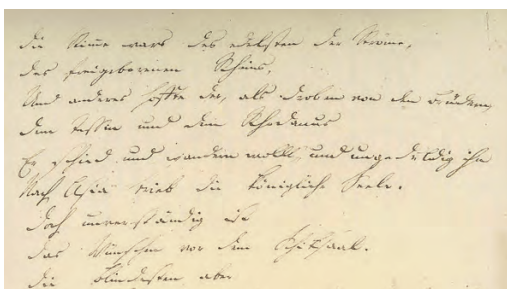 Die Stimme wars des edelsten der Ströme,
Des freigeborenen Rheins,
Und anderes hoffte der, als droben von den Brüdern,
Dem Tessin und dem Rhodanus
Er schied und wandern wollt', und ungeduldig ihn
Nach Asia trieb die königliche Seele.
Doch unverständig ist
Das Wünschen vor dem Schiksaal.
Die Blindesten aber